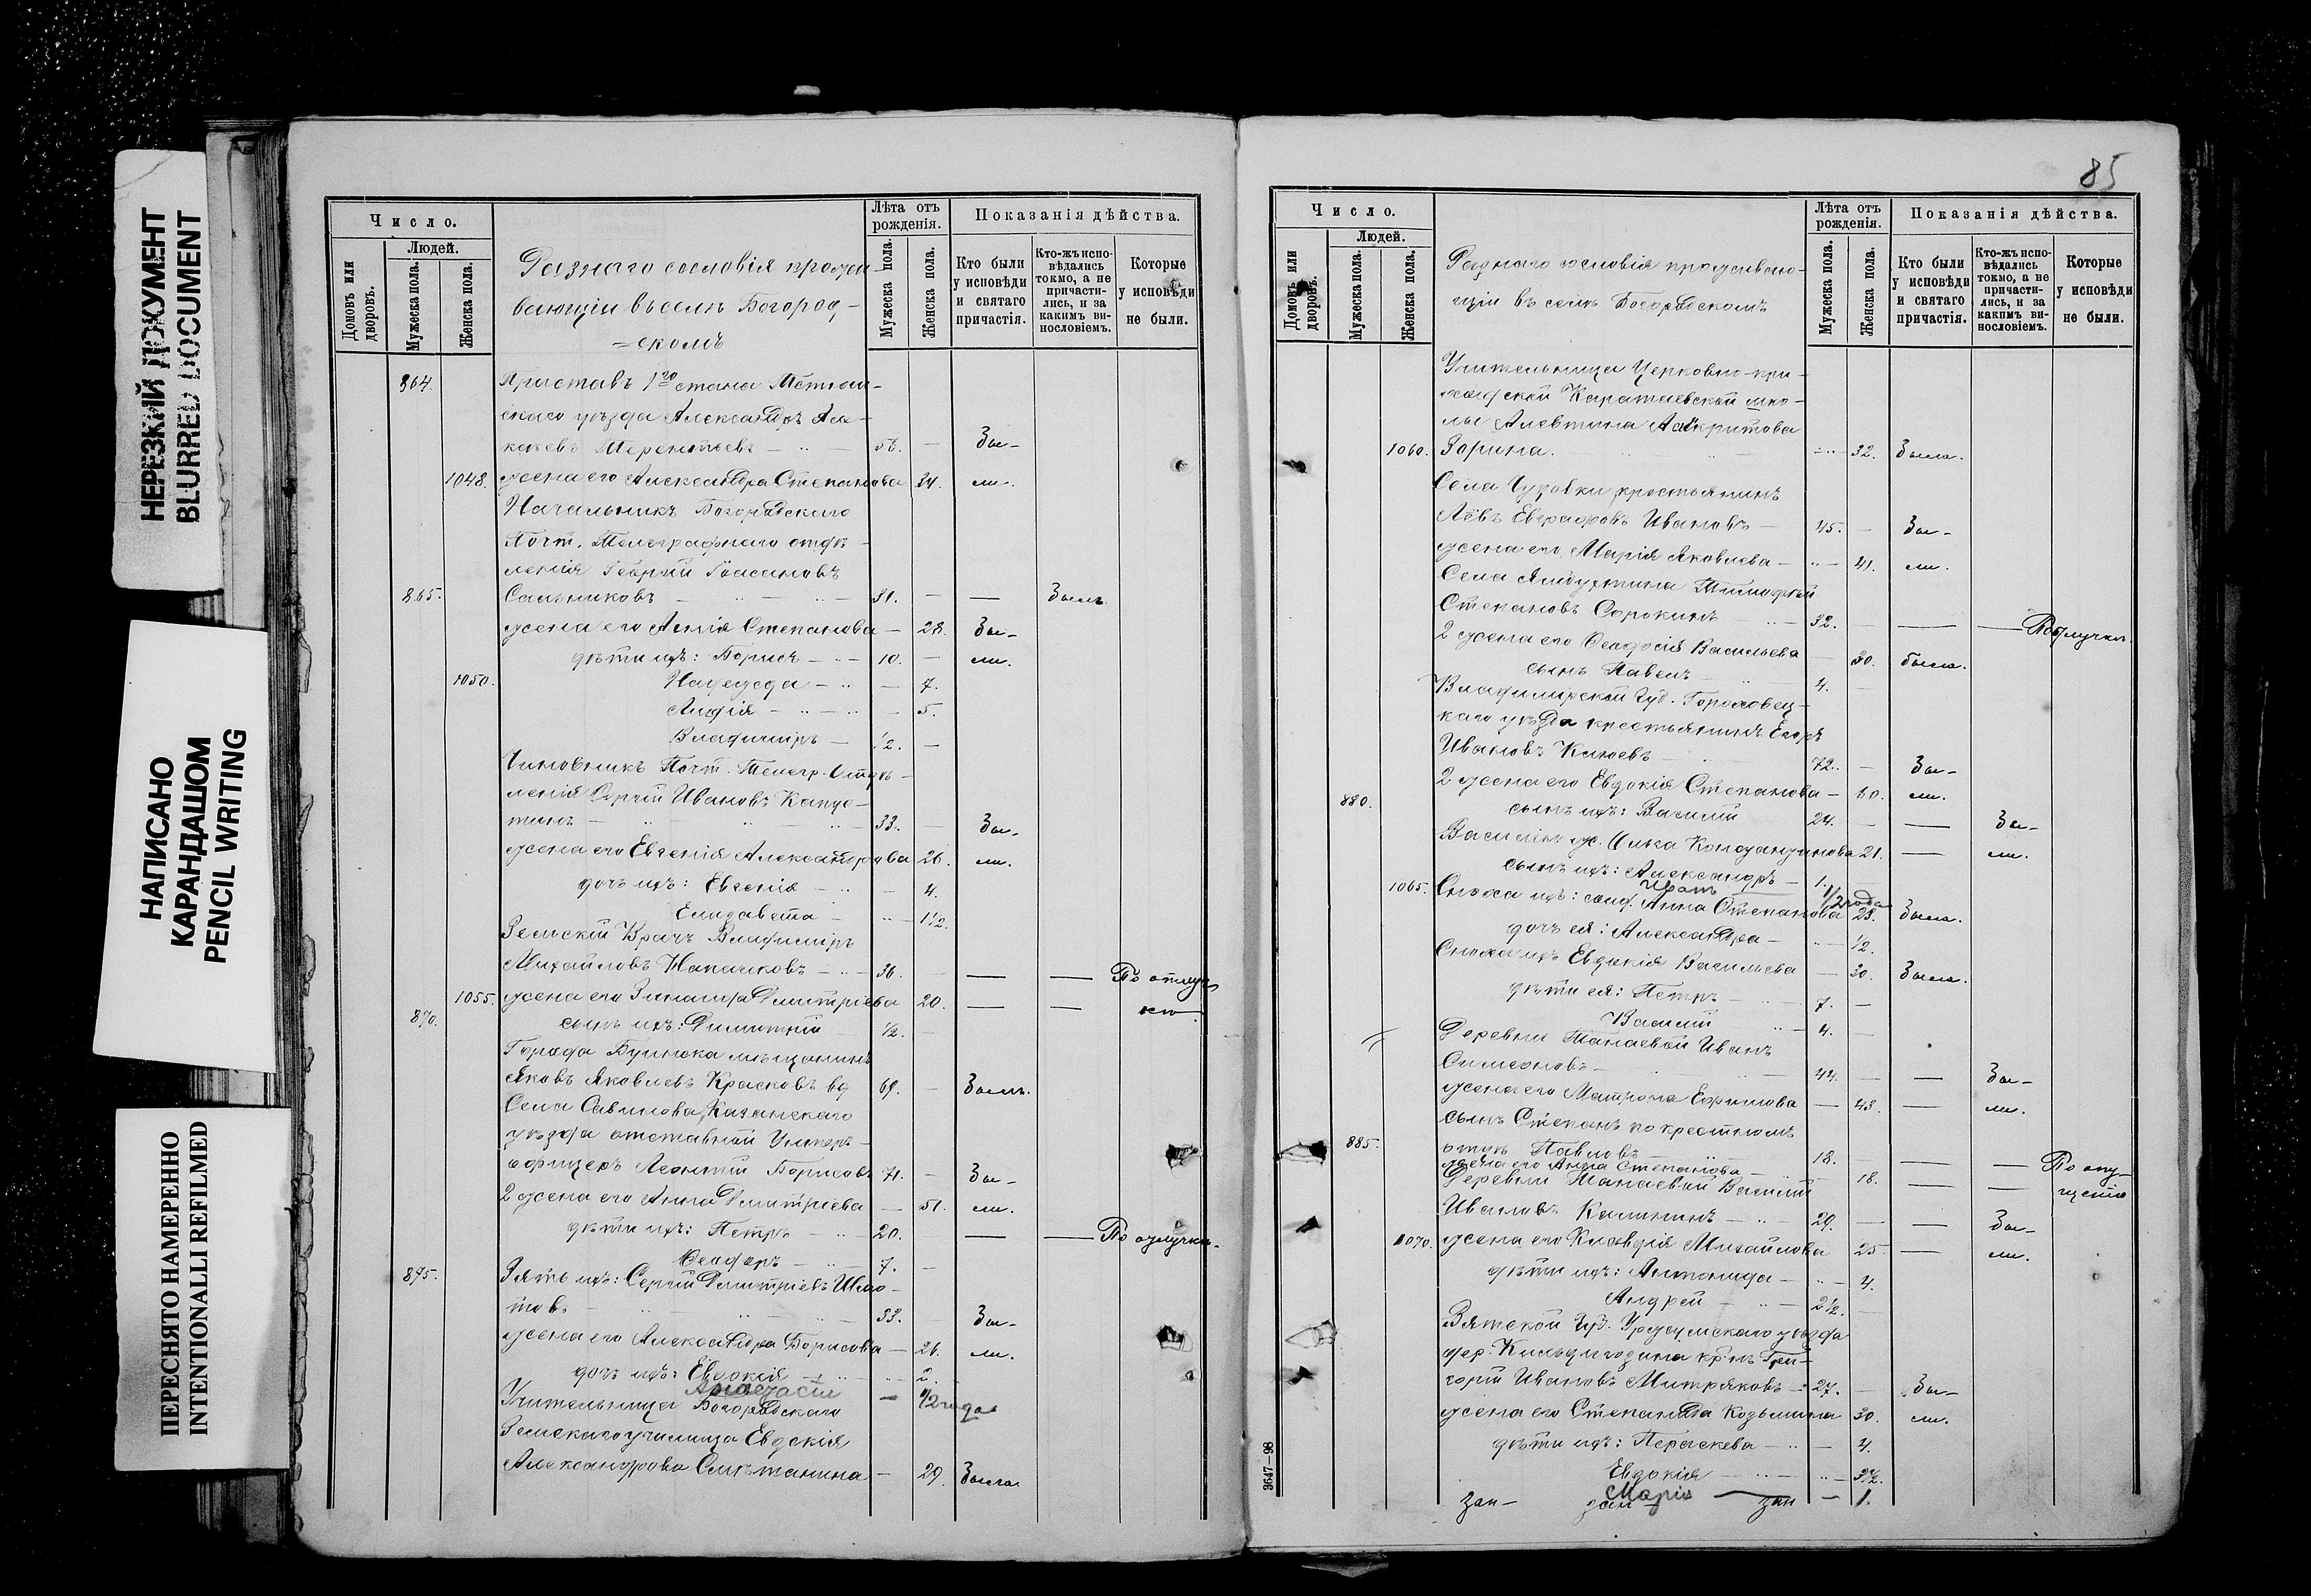 НЕРЕЗКИЙ ДОКУМЕНТ
BLURRED DOCUMENT
НАПИСАНО
КАРАНДАШОМ
PENCIL WRITING
ПЕРЕСНЯТО НАМЕРЕННО
INTENTIONALLI REFILMED
Число.
Людей.
Домовъ или дворовъ.
Мужеска пола.
Женска пола.
Разнаго сословія прожи-
вающіи въ селѣ Богород-
=скомъ
Лѣта отъ рожденія.
Мужеска пола.
Женска пола.
Показанія дѣйства.
Кто были у исповѣди и святаго причастія.
Кто-жъ исповѣдались токмо, а не причастились, и за какимъ винословіемъ.
Которые у исповѣди не были.
864. Приставъ 1го стана
скаго уѣзда Александръ
Терентьевъ 56. — Бы-
1048. жена его Александра Степанова 34. ли.
Начальникъ Богородскаго
Почт. Телеграфнаго отдѣ-
ленія Георгій
865. Сальниковъ 31. — — Былъ
жена его Степанова — 28. Бы-
дѣти ихъ: Борисъ 10. — ли.
1050. Надежда — 7.
Лидія — 5.
Владиміръ — 1/2. —
Чиновникъ Почт. Телегр. Отдѣ-
ленія Сергій Ивановъ Капус-
тинъ 33. — Бы-
жена его Евгенія Александрова 26. ли.
дочь ихъ: Евгенія — 4.
Елизавета — 1 1/2.
Земскій Врачъ Владиміръ
Михайловъ 36. — — — По отлуч
1055. жена его Зинаида Дмитріева 20. — — кѣ
870. сынъ ихъ: Димитрій 1/2. —
Города Буинска мѣщанинъ
Яковъ Яковлевъ Красковъ вд 69. — Былъ.
Села Савинова, Казанскаго
уѣзда отставной Унтеръ-
офицеръ Леонтій Борисовъ 71. — Бы-
2 жена его Анна Дмитріева — 51. ли.
дѣти ихъ: Петръ 20. — — По отлучкѣ.
Ѳеодоръ 7. —
875. Зять ихъ: Сергій Дмитріевъ
товъ 33. — Бы-
жена его Александра Борисова — 26. ли.
дочь ихъ: Евдокія 2.
— 1/2 года
Учительница Богородскаго
Земскаго училища Евдокія
Александрова Смѣтанина — 29. Была
85
Число.
Людей.
Домовъ или дворовъ.
Мужеска пола.
Женска пола.
Разнаго сословія проживаю-
щіи въ селѣ Богородскомъ
Лѣта отъ рожденія.
Мужеска пола.
Женска пола.
Показанія дѣйства.
Кто были у исповѣди и святаго причастія.
Кто-жъ исповѣдались токмо, а не причастились, и за какимъ винословіемъ.
Которые у исповѣди не были.
Учительница Церковно-при-
ходской Каратаевской шко-
лы Алевтина
1060. Зорина. 32. Была.
Села Чуровки крестьянинъ
Левъ Евграфовъ Ивановъ — 45. — Бы-
жена его Марія Яковлева — 41. ли.
Села Тимофей
Степановъ Сорокинъ 32. — — —
2 жена его Ѳеодосія Васильева — 30. была.
сынъ Павелъ 4. —
Владимірской Губ. Гороховец-
каго уѣзда крестьянинъ Егоръ
Ивановъ Клюевъ 72. — Бы-
2 жена его Евдокія Степанова — 60. ли.
880. сынъ ихъ: Василій 24. — — Бы-
Василія ж. Константинова 21. — ли.
сынъ ихъ: Александръ — 1. —
Иванъ 1/2 года
1065. Сноха ихъ: солд. Анна Степанова 23. Была.
дочь ея: Александра — 1/2.
Сноха ихъ Евдокія Васильева — 30. Была.
дѣти ея: Петръ 7. —
Василій 4. —
Деревни Танаевой Иванъ
Симеоновъ 44. — — Бы-
жена его Матрона Ефимова — 43. — ли.
сынъ Степанъ по крестномъ
885. отцѣ Павловъ 18. — — По опу-
жена его Анна Степанова — 18. — — щенію
Деревни Танаевой Василій
Ивановъ Калининъ 29. — — Бы-
1070. жена его Клавдія Михайлова 25. — ли.
дѣти ихъ: Антонида — 4.
Андрей 2 1/2. —
Вятской Губ. Уржумскаго уѣзда
дер. кр-нъ Гри-
горій Ивановъ Митряковъ — 27. — Бы-
жена его Степанида Козьмина 30. ли.
дѣти ихъ: Параскева — 4.
Евдокія 2 1/2.
Марія — 1.
3647—98